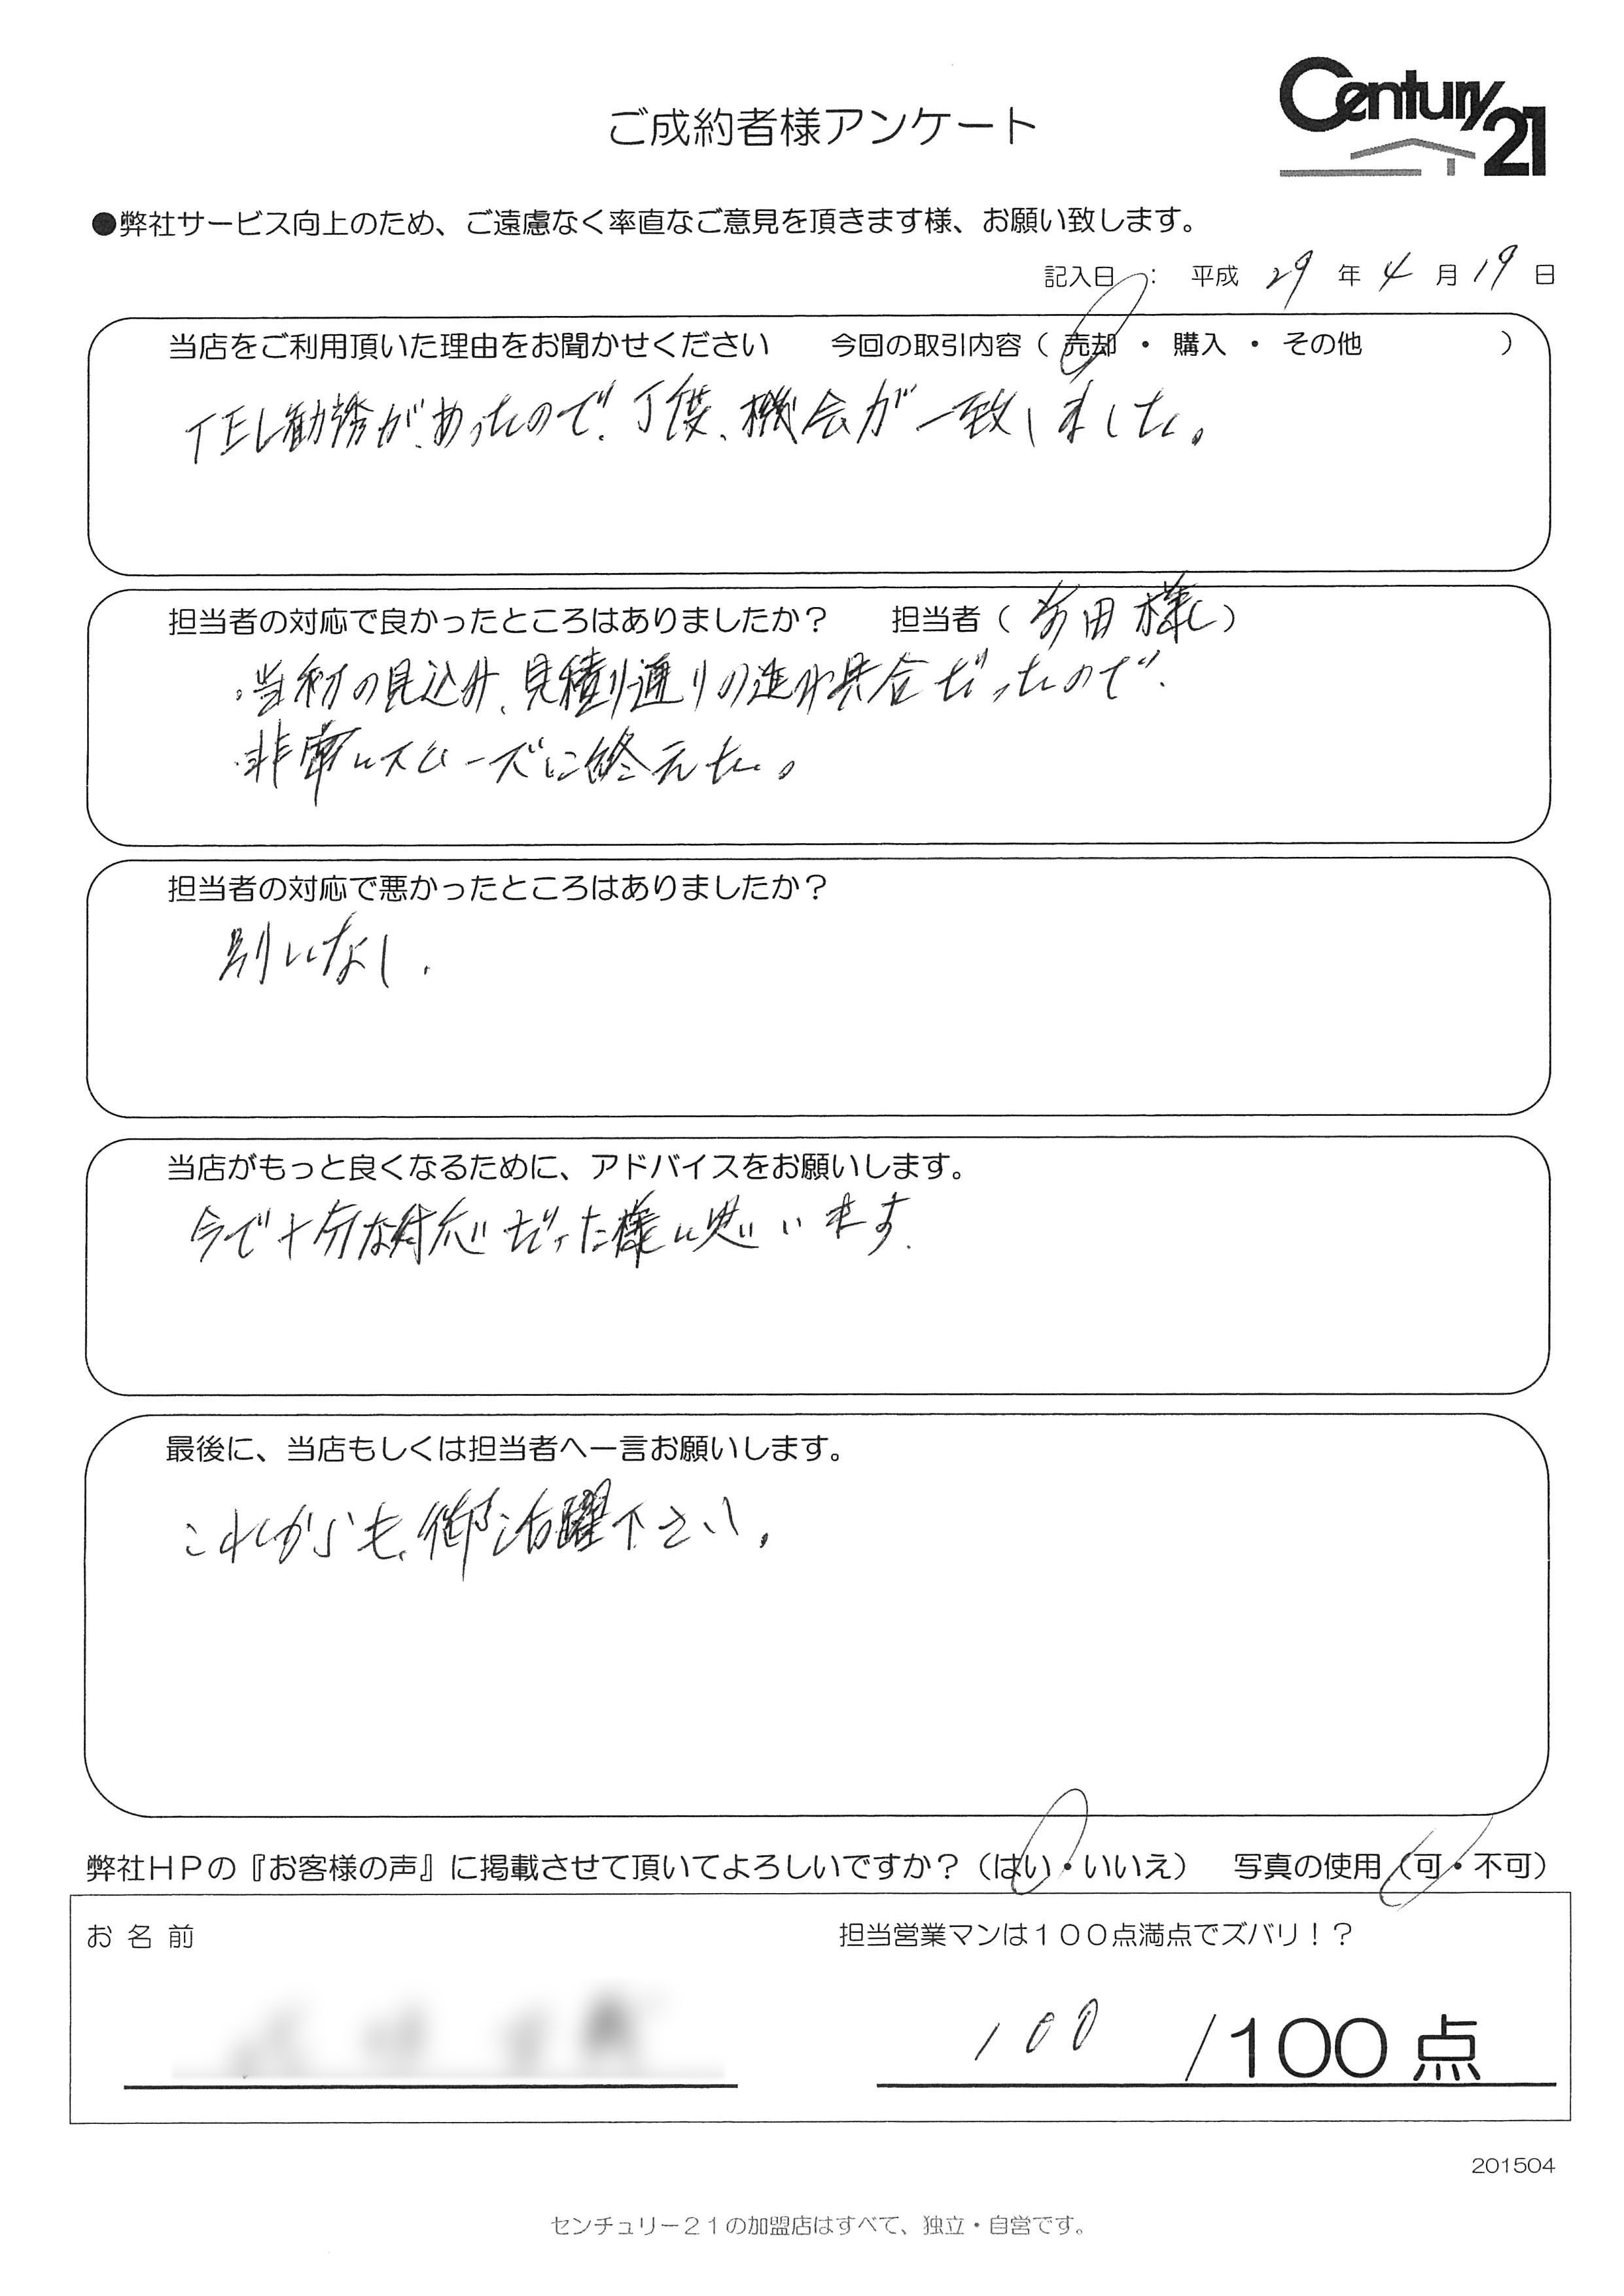 Century 21
ご成約者様アンケート
●弊社サービス向上のため、ご遠慮なく率直なご意見を頂きます様、お願い致します。
記入日 : 平成 29 年 4 月 19 日
当店をご利用頂いた理由をお聞かせください 今回の取引内容 ( 売却 ・ 購入 ・ その他 )
TEL勧誘が、あったので、丁度、機会が一致しました。
担当者の対応で良かったところはありましたか? 担当者 ( 田 様 )
・当初の見込み、見積り通りの進み具合だったので、
非常にスムーズに終えた。
担当者の対応で悪かったところはありましたか?
別になし.
当店がもっと良くなるために、アドバイスをお願いします。
今で十分な対応だった様に思います.
最後に、当店もしくは担当者へ一言お願いします。
これからも、御活躍下さい。
弊社HPの『お客様の声』に掲載させて頂いてよろしいですか? (はい・いいえ) 写真の使用 (可・不可)
お 名 前 担当営業マンは100点満点でズバリ!?
100 /100 点
201504
センチュリー21の加盟店はすべて、独立・自営です。